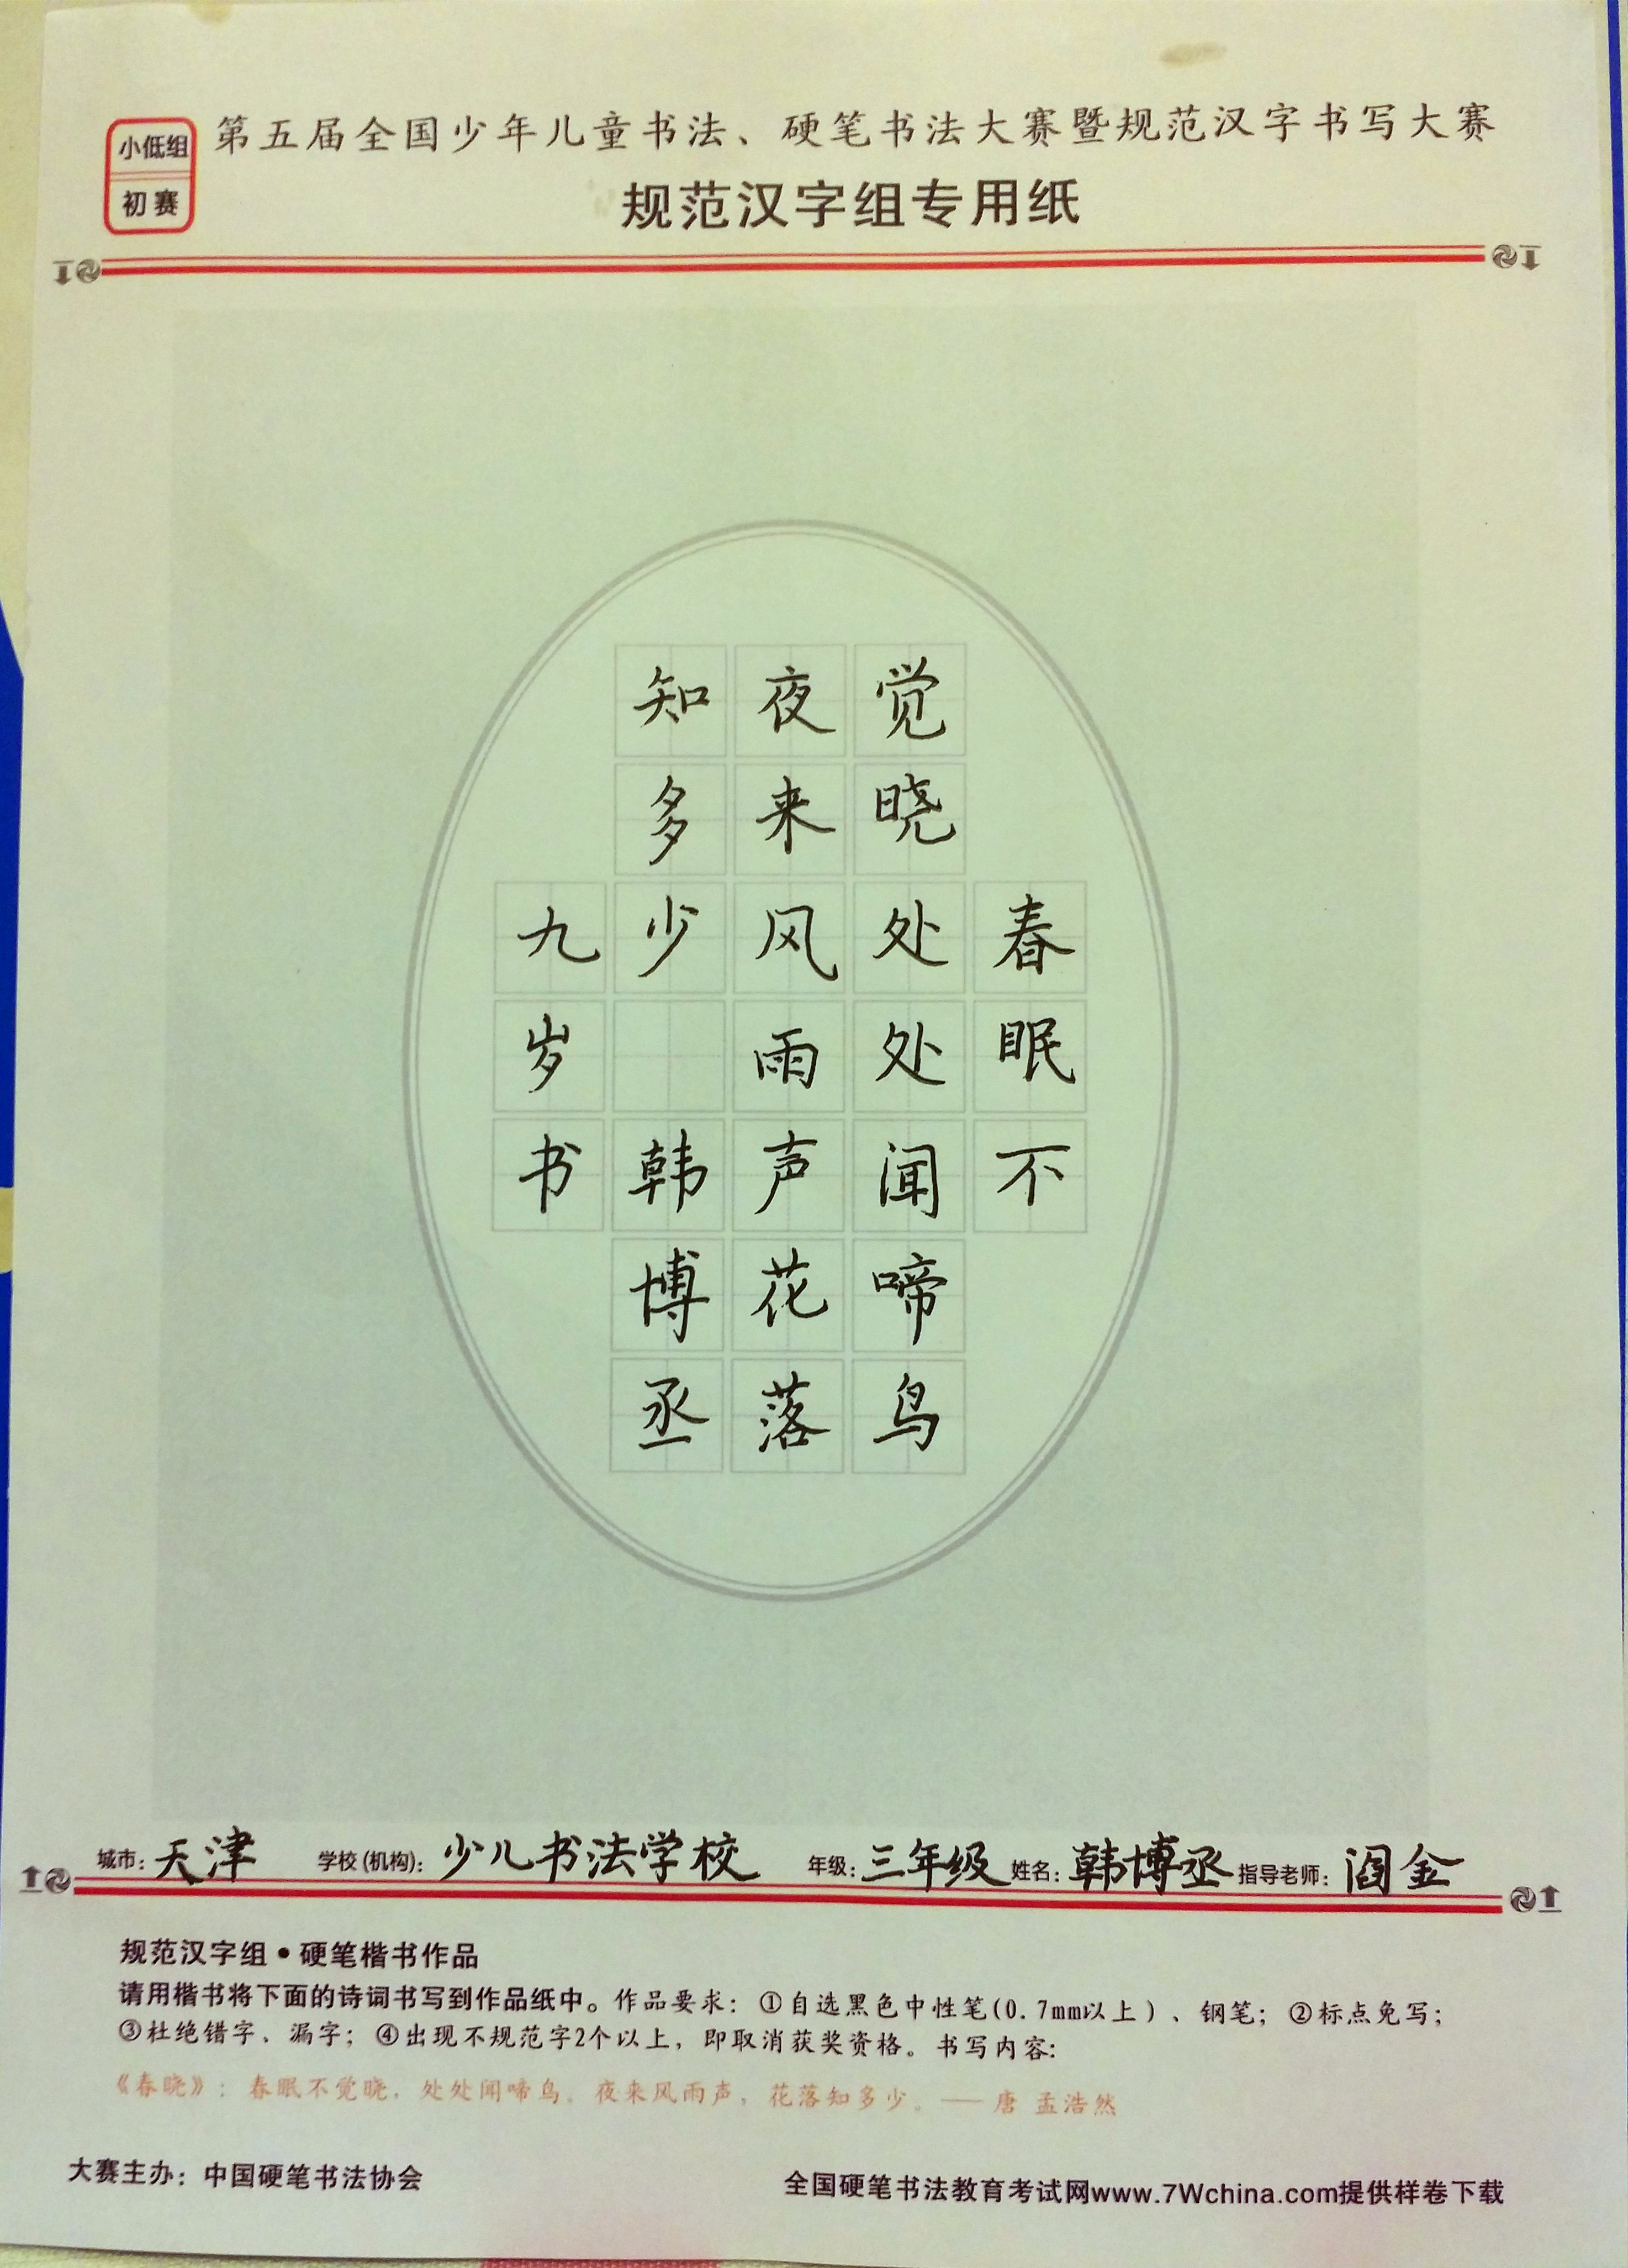 小低组
初赛
第五届全国少年儿童书法、硬笔书法大赛暨规范汉字书写大赛
规范汉字组专用纸
春眠不
觉晓处处闻啼鸟
夜来风雨声花落
知多少 韩博丞
九岁书
城市：天津 学校(机构)：少儿书法学校 年级：三年级 姓名：韩博丞 指导老师：阎金
规范汉字组·硬笔楷书作品
请用楷书将下面的诗词书写到作品纸中。作品要求：①自选黑色中性笔(0.7mm以上)、钢笔；②标点免写；
③杜绝错字、漏字；④出现不规范字2个以上，即取消获奖资格。书写内容：
《春晓》：春眠不觉晓，处处闻啼鸟。夜来风雨声，花落知多少。——唐 孟浩然
大赛主办：中国硬笔书法协会
全国硬笔书法教育考试网www.7Wchina.com提供样卷下载